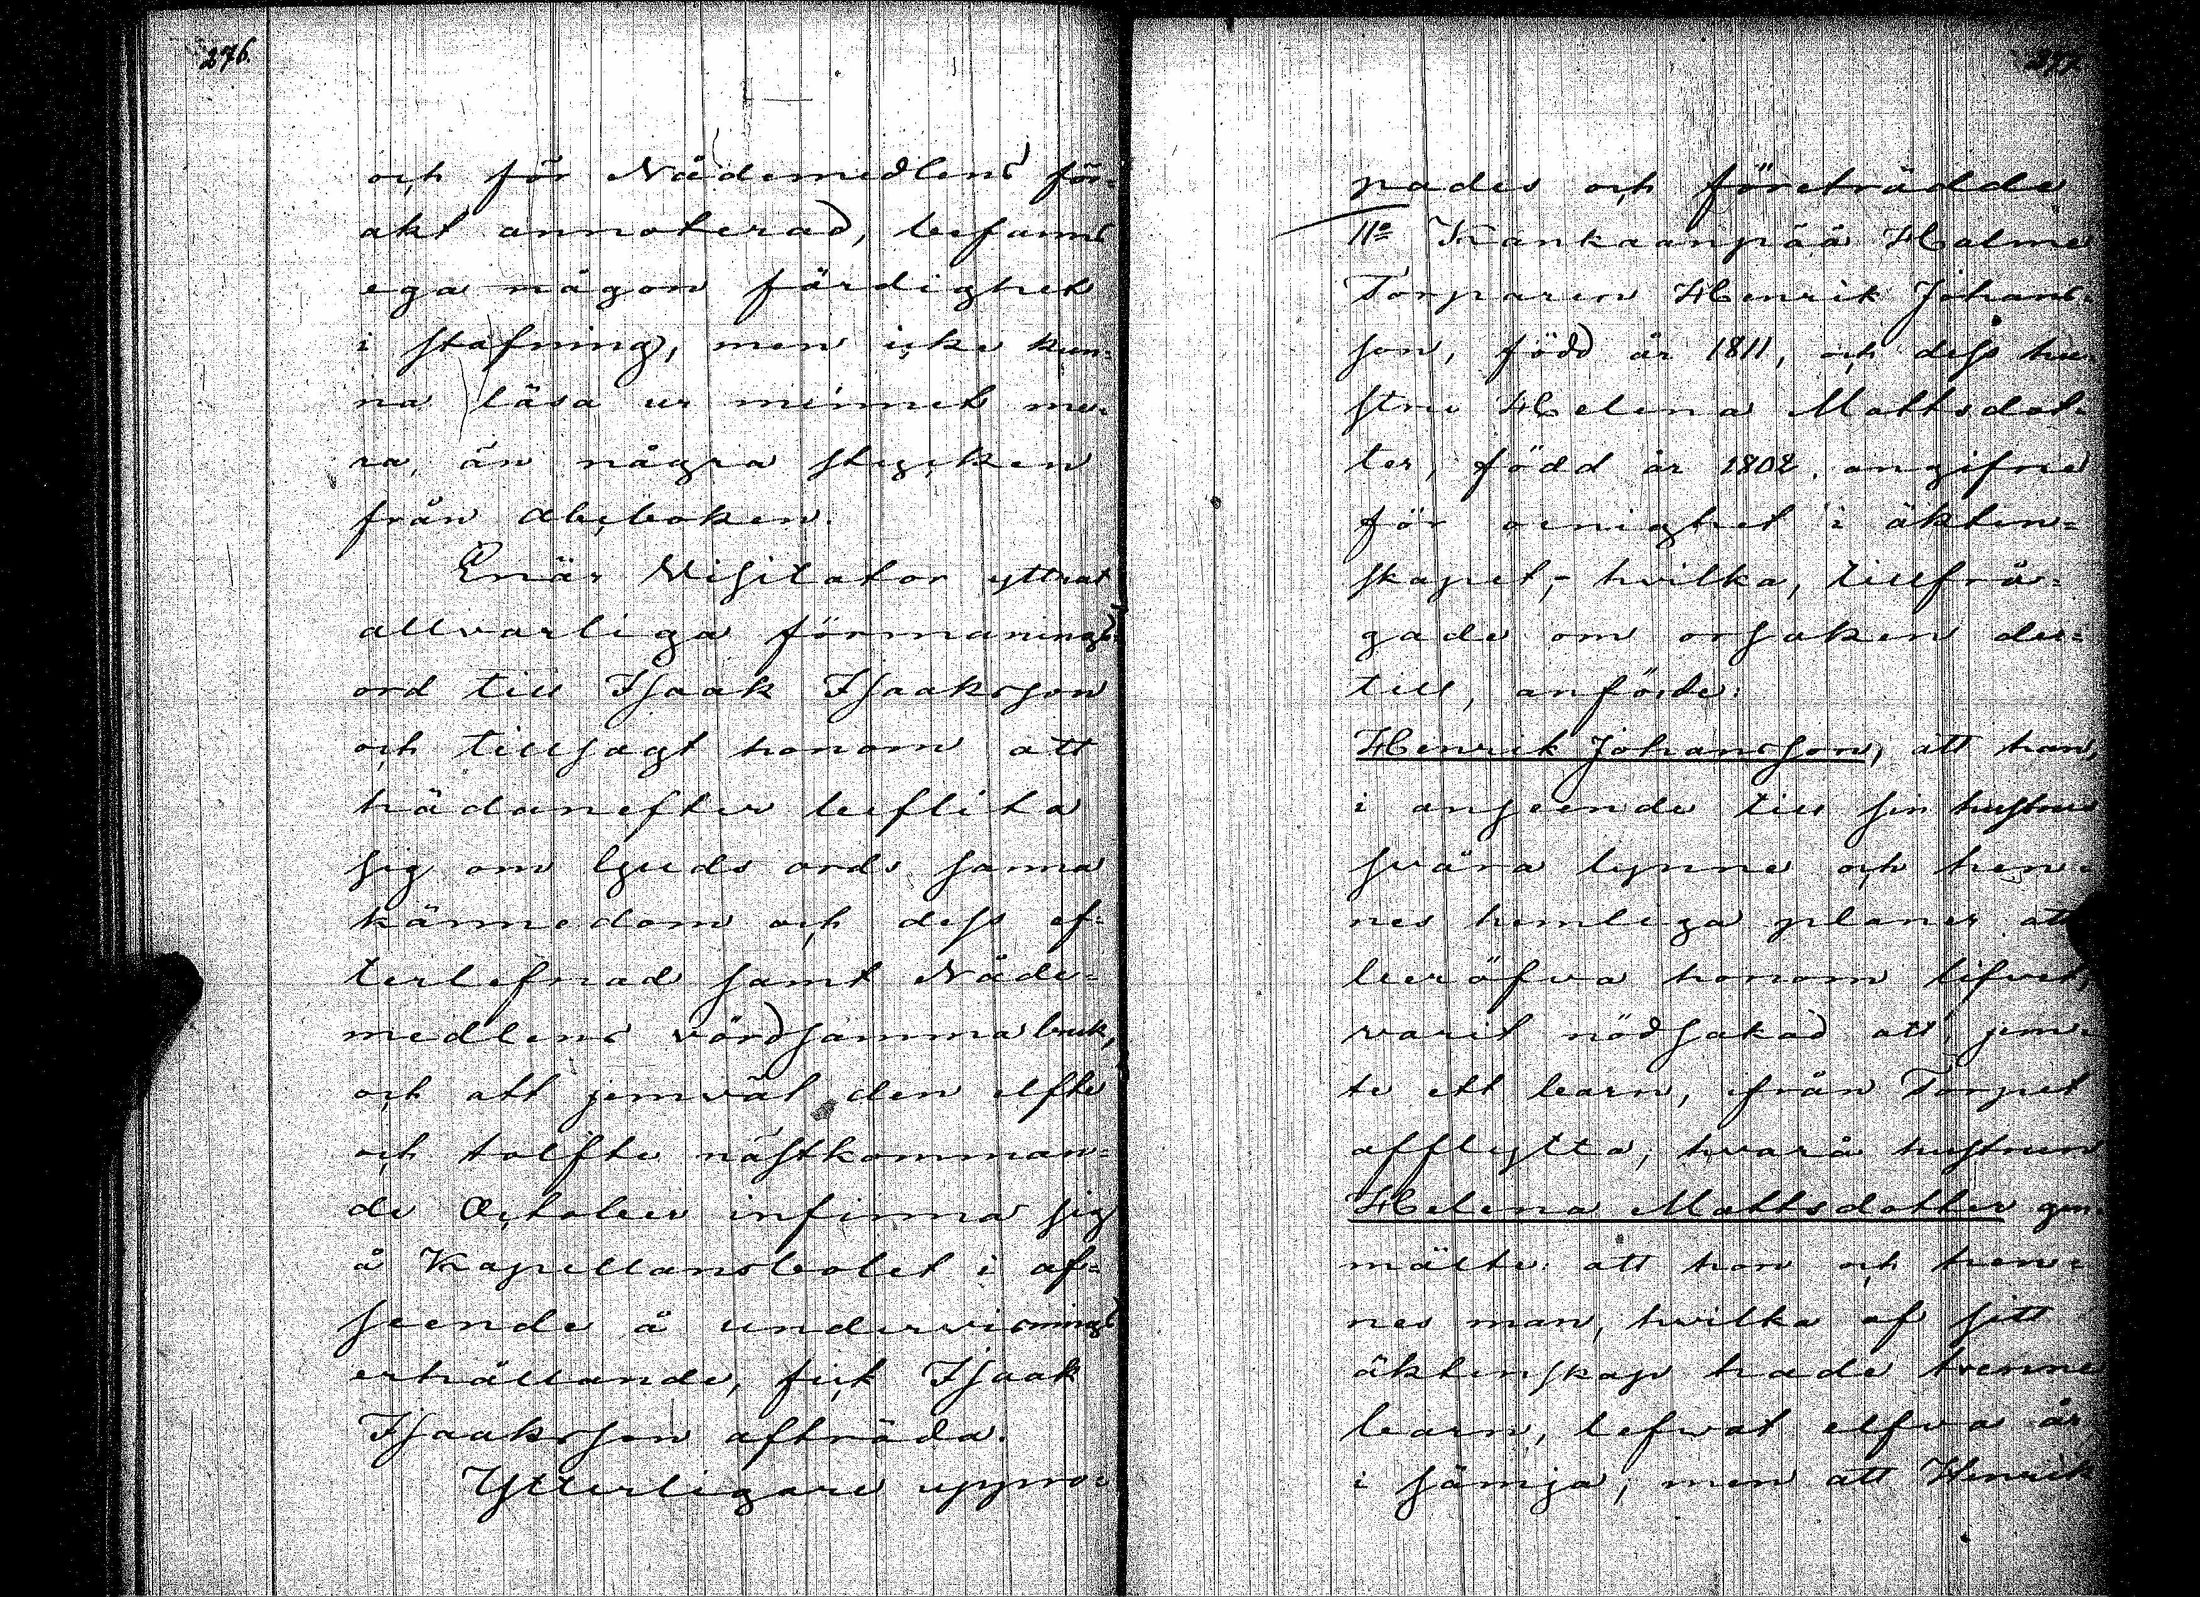 276.
och för Nådemedlens för-
akt annoterad, befanns
ega någon färdighet
i stafning, men icke kun-
na läsa ur minnet me-
ra, än några stycken
från abcboken.
Enär Visitator yttrat
allvarliga förmanings
ord till Isaak Isaaksson
och tillsagt honom att
hädanefter beflita
sig om Guds ords sanna
kännedom och dess ef-
terlefnad samt Nåde-
medlens vördsamma bruk,
och att jemväl den elfte
och tolfte nästkomman-
de October infinna sig
å Kapellansbolet i af-
seende å undervisnings
erhållande, fick Isaak
Isaaksson afträda.
Ytterligare uppro-
277
pades och företrädde
11o Kankaanpää Holme
Torparen Henrik Johans-
son, född år 1811, och dess hu-
stru Helena Mattsdot-
ter, född år 1802, angifne
för oenighet i äkten-
skapet,- hvilka, tillfrå-
gade om orsaken der-
till, anförde:
Henrik Johansson, att han,
i anseende till sin hustrus
svåra lynne och hen-
nes hemliga planer att
beröfva honom lifvet,
varit nödsakad att, jem-
te ett barn, från Torpet
afflytta, hvarå hustrun
Helena Mattsdotter gen-
mälte: att hon och hen-
nes man, hvilka af sitt
äktenskap hade trenne
barn, lefvat elfva år
i sämja, men att Henrik